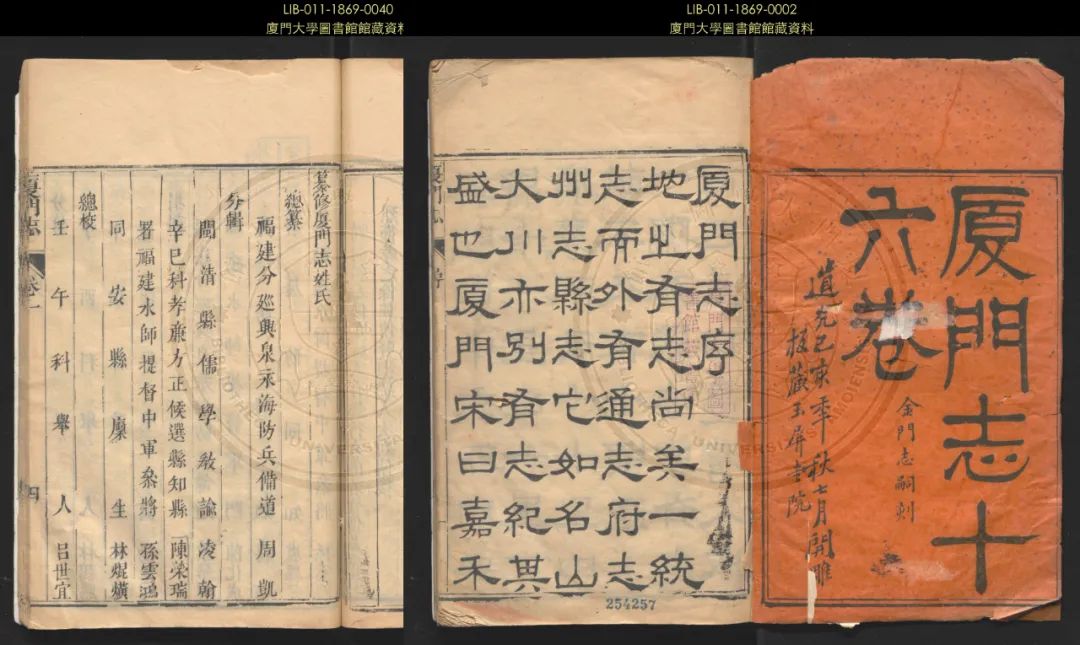 LIB-011-1869-0040
廈門大學圖書館館藏資料
纂修廈門志姓氏
總纂
福建分巡興泉永海防兵備道 周凱
分輯
閩清縣儒學教諭 凌翰
辛巳科孝廉方正候選縣知縣 陳榮瑞
署福建水師提督中軍叅將 孫雲鴻
同安縣廩生 林焜熿
總校
壬午科舉人 呂世宜
廈門志
卷一
四
LIB-011-1869-0002
廈門大學圖書館館藏資料
廈門志十
六卷
金門志嗣刻
道光己亥季秋七月開雕
板藏玉屏書院
廈門志序
地之有志尚矣一統
志而外有通志府志
州志縣志它如名山
大川亦別有志紀其
盛也廈門宋曰嘉禾
254257